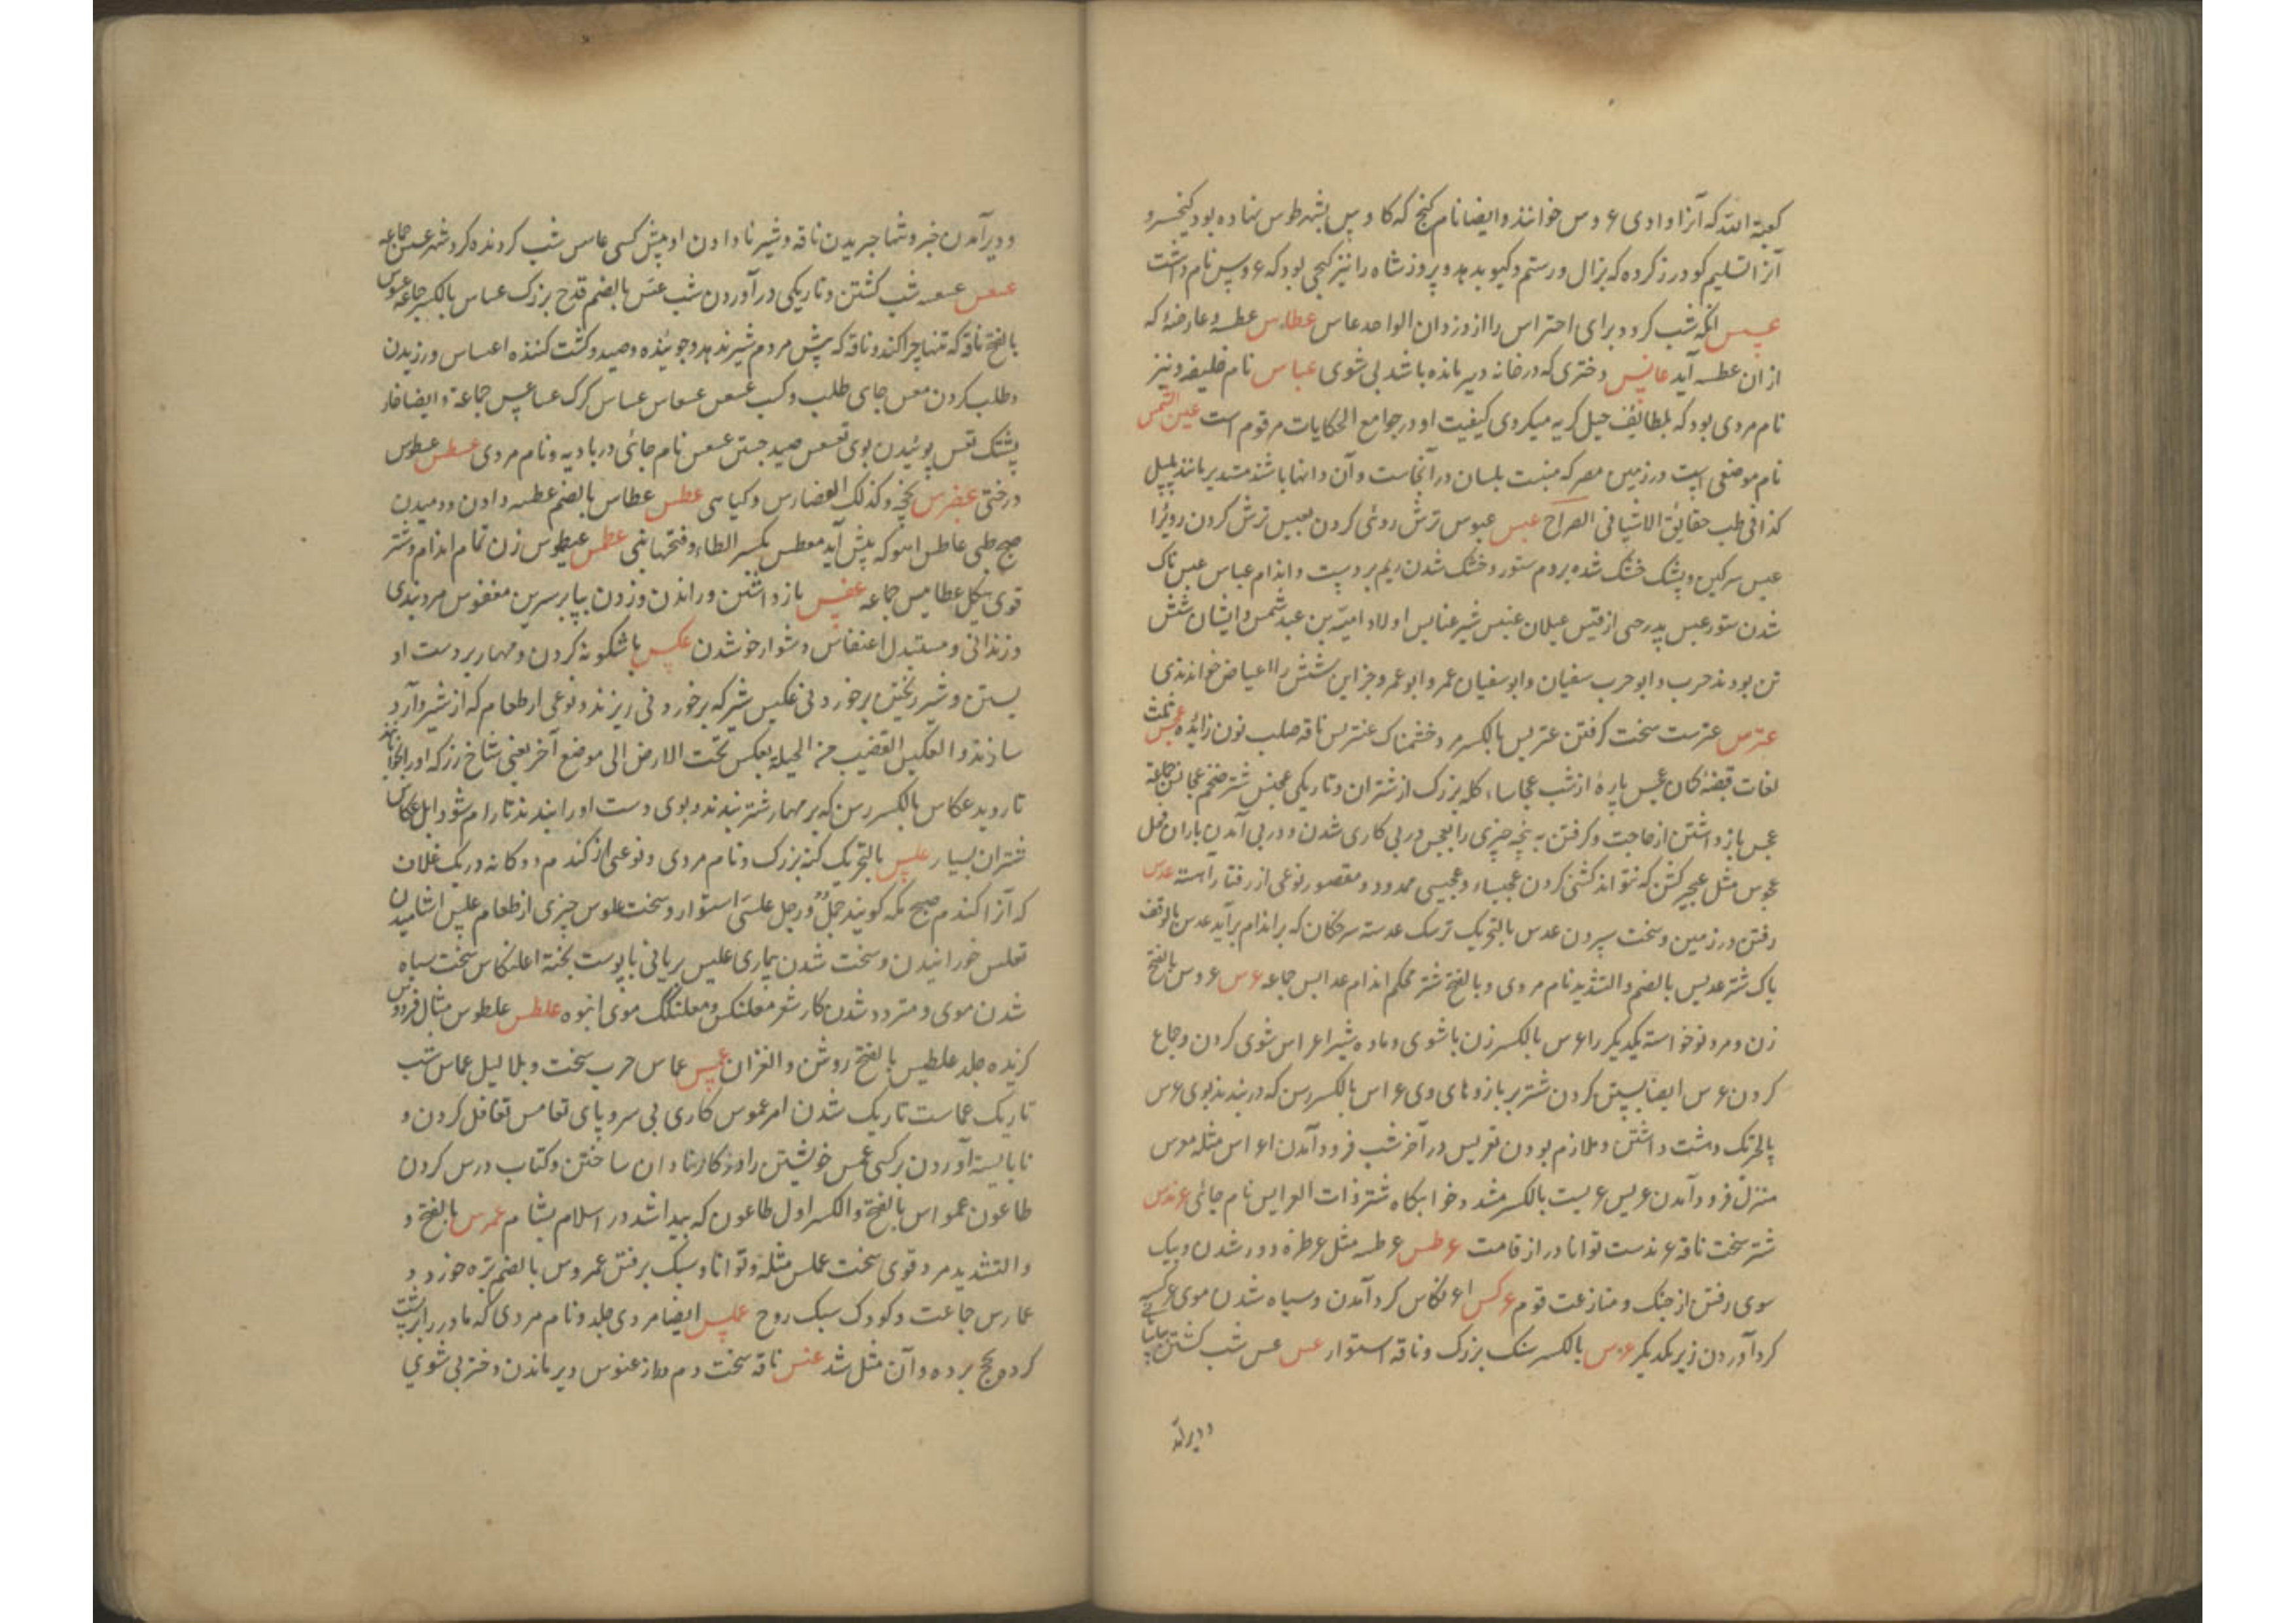 کعبة الله که آنرا وادی عروس خوانند و ایضا نام کنج که کاوس بشهر طوس نهاده بود کیخسرو
آنرا تسلیم کودرز کرده که بزال و رستم و کیو بدهد و پرویز شاه را نیز کنجی بود که عروس نام داشت
عسس انکه شب کردد برای احتراس را از دزدان الواحد عاس عطاس عطسه و عارضهٔ که
از ان عطسه آید عانس دختری که در خانه دیر مانده باشد بی شوی عباس نام خلیفه و نیز
نام مردی بود که بلطائف حیل کریه میکردی کیفیت او در جوامع الحکایات مرقوم است عین الشمس
نام موضعی است در زمین مصر که منبت بلسان در آنجاست و آن دانها باشد مستدیر مانند پلپل
کذا فی طب حقائق الاشیا فی الصراح عبس عبوس ترش روئی کردن تعبیس ترش کردن روی را
عبس سرکین و پشک خشک شده بر دم ستور و خشک شدن ریم بر دست و اندام عباس عبس ناک
شدن ستور عبس پدر حی از قیس عیلان عنبس شیر عنابس اولاد امیة بن عبد شمس و ایشان شش
تن بودند حرب و ابو حرب سفیان و ابوسفیان عمرو ابو عمرو جز این شش را اعیاص خواندندی
عترس عترست سخت کرفتن عتریس بالکسر مرد خشمناک عنتریس ناقه صلب نون زائده عجس بثلث
لغات قبضهٔ کمان عجس پارهٔ از شب عجاساء کله بزرک از شتران و تاریکی عجنس شتر ضخم عجانس جماعة
عجس باز داشتن از حاجت و کرفتن به پنجه چیزی را تعجس در پی کاری شدن و در پی آمدن باران فحل
عجوس مثل عجیر کشن که نتواند کشنی کردن عجیساء و عجیسی ممدود و مقصور نوعی از رفتار آهسته عدس
رفتن در زمین و سخت سپردن عدس بالتحریک ترسک عدسه سرخکان که بر اندام برآید عدس بالوقف
باک شتر عدبس بالضم و التشدید نام مردی و بالفتح شتر محکم اندام عدابس جماعه عرس عروس بالفتح
زن و مرد نوخواسته یکدیکر را عرس بالکسر زن با شوی و ماده شیر اعراس شوی کردن و جماع
کردن عرس ایضا بستن کردن شتر بر بازوهای وی عراس بالکسر رسن که در بندند بوی عرس
بالتحریک دهشت داشتن و ملازم بودن تعریس در آخر شب فرود آمدن اعراس مثله معرس
منزل فرود آمدن عریس عریسة بالکسر مشدد خوابکاه شتر ذات العرایس نام جائی عرندس
شتر سخت ناقه عرندست توانا دراز قامت عرطس عرطسه مثل عرطزه دور شدن و بیک
سوی رفتن از جنک و منازعت قوم عرکس اعرنکاس کرد آمدن و سیاه شدن موی عرکسه
کرد آوردن زیر یکدیکر عرمس بالکسر سنک بزرک و ناقه استوار عس عس شب کشتن
و دیر آمدن
و دیر آمدن خبر و شما جریدن ناقه و شیر نادادن او پیش کسی عاس شب کردنده کرد شهر عسس جماعه
عسعس عسعسه شب کشتن و تاریکی درآوردن شب عس بالضم قدح بزرک عساس بالکسر جماعة عسوس
بالفتح ناقه که تنها چرا کند و ناقه که پیش مردم شیر ندهد و جوینده و صید و کشت کننده اعساس ورزیدن
و طلب کردن معس جای طلب و کسب عسعس عسعاس عساس کرک عساعس جماعة و ایضا خار
پشتک تعس بوئیدن بوی تعسعس صید جستن عسعس نام جائی در بادیه و نام مردی عسطس عسطوس
درختی عضرس یخچه و کذلک العضارس و کیاهی عطس عطاس بالضم عطسه دادن و دمیدن
صبح ظبی عاطس اهو که پیش آید معطس بکسر الطاء و فتحها بینی عطمس عیطموس زن تمام اندام و شتر
قوی هیکل عطامیس جماعه عفس باز داشتن و راندن و زدن بپا بر سرین معفوس مرد بندی
و زندانی و مستبدل اعنفاس دشوار خو شدن عکس باشکونه کردن و مهار بر دست او
بستن و شیر ریختن بر خوردنی عکیس شیر که بر خوردنی ریزند و نوعی از طعام که از شیر و آرد
سازند و العکیس القضیب من الحبلة یعکس تحت الارض الی موضع آخر یعنی شاخ رز که او را بخوابانند
تا روید عکاس بالکسر رسن که بر مهار شتر بندند و بوی دست او را بندند تا رام شود ابل عکاس
شتران بسیار علس بالتحریک کنه بزرک و نام مردی و نوعی از کندم دوکانه در یک غلاف
که آنرا کندم صبح مکه کویند جمل و رجل علسی استوار و سخت علوس چیزی از طعام علس اشامیدن
تعلس خورانیدن و سخت شدن بیماری علیس بریانی با پوست بخته اعلنکاس سخت سیاه
شدن موی و متردد شدن کار شعر معلنکس و معلنکک موی انبوه علطس علطوس مثال فردوس
کزیده جلد علطیس بالفتح روشن و الغران عمس عماس حرب سخت و بلا لیل عماس شب
تاریک عماست تاریک شدن امر عموس کاری بی سر و پای تعامس تغافل کردن و
نابایسته آوردن بر کسی عمس خویشتن را در کار نادان ساختن و کتاب درس کردن
طاعون عمواس بالفتح و الکسر اول طاعون که پیدا شد در اسلام بشام عمرس بالفتح و
والتشدید مرد قوی سخت عملس مثله و توانا و سبک برفتن عمروس بالضم بره خورد و
عمارس جماعت و کودک سبک روح عملس ایضا مردی جلد و نام مردی که مادر را بر پشت
کرده بحج برده و آن مثل شد عنس ناقه سخت دم دراز عنوس دیر ماندن دختر بی شوی